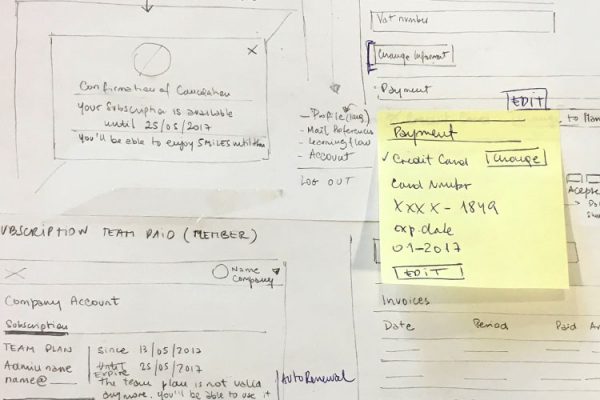 Confirmation of Cancelation
Your subscription is available
until 25/05/2017
You'll be able to enjoy SMILES until then
- Profile (lang.)
- Mail Preferences
- Learning flow
- Account
LOG OUT
Vat number
Change Informat
Payment
EDIT
Payment
✓ Credit Card Change
Card Number
XXXX - 1849
exp. date
01-2017
EDIT
to
Invoices
Date Period Paid
UBSCRIPTION TEAM PAID (MEMBER)
Name
Company
Company Account
Subscription
TEAM PLAN
Admin name
name@
Since 13/05/2017
Expire 25/05/2017
The team plan is not valid
anymore. You'll be able to use it
Auto Renewal